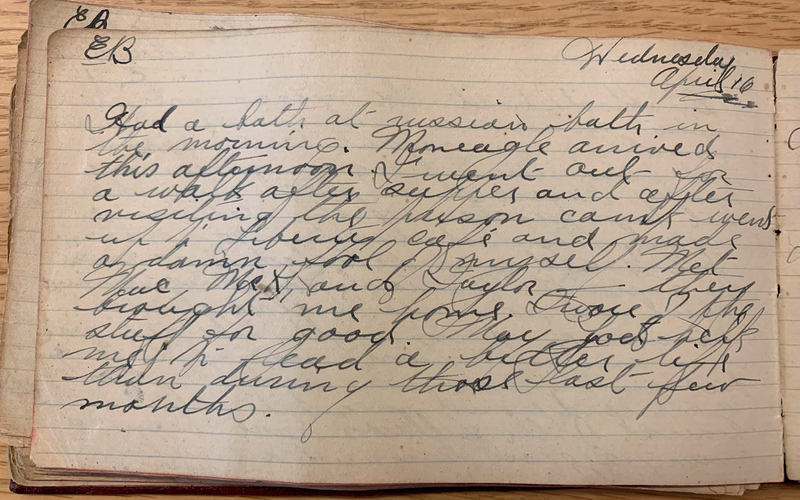 EB
EB
Wednesday
April 16
Had a bath at russian bath in
the morning. Moneagle arrived
this afternoon. I went out for
a walk after supper and after
visiting the prison camp went
up to Siberia café and made
a damn fool of myself. Met
Mac and Taylor they
brought me home. Swore off the
stuff for good. May God help
me to lead a better life
than during those last few
months.